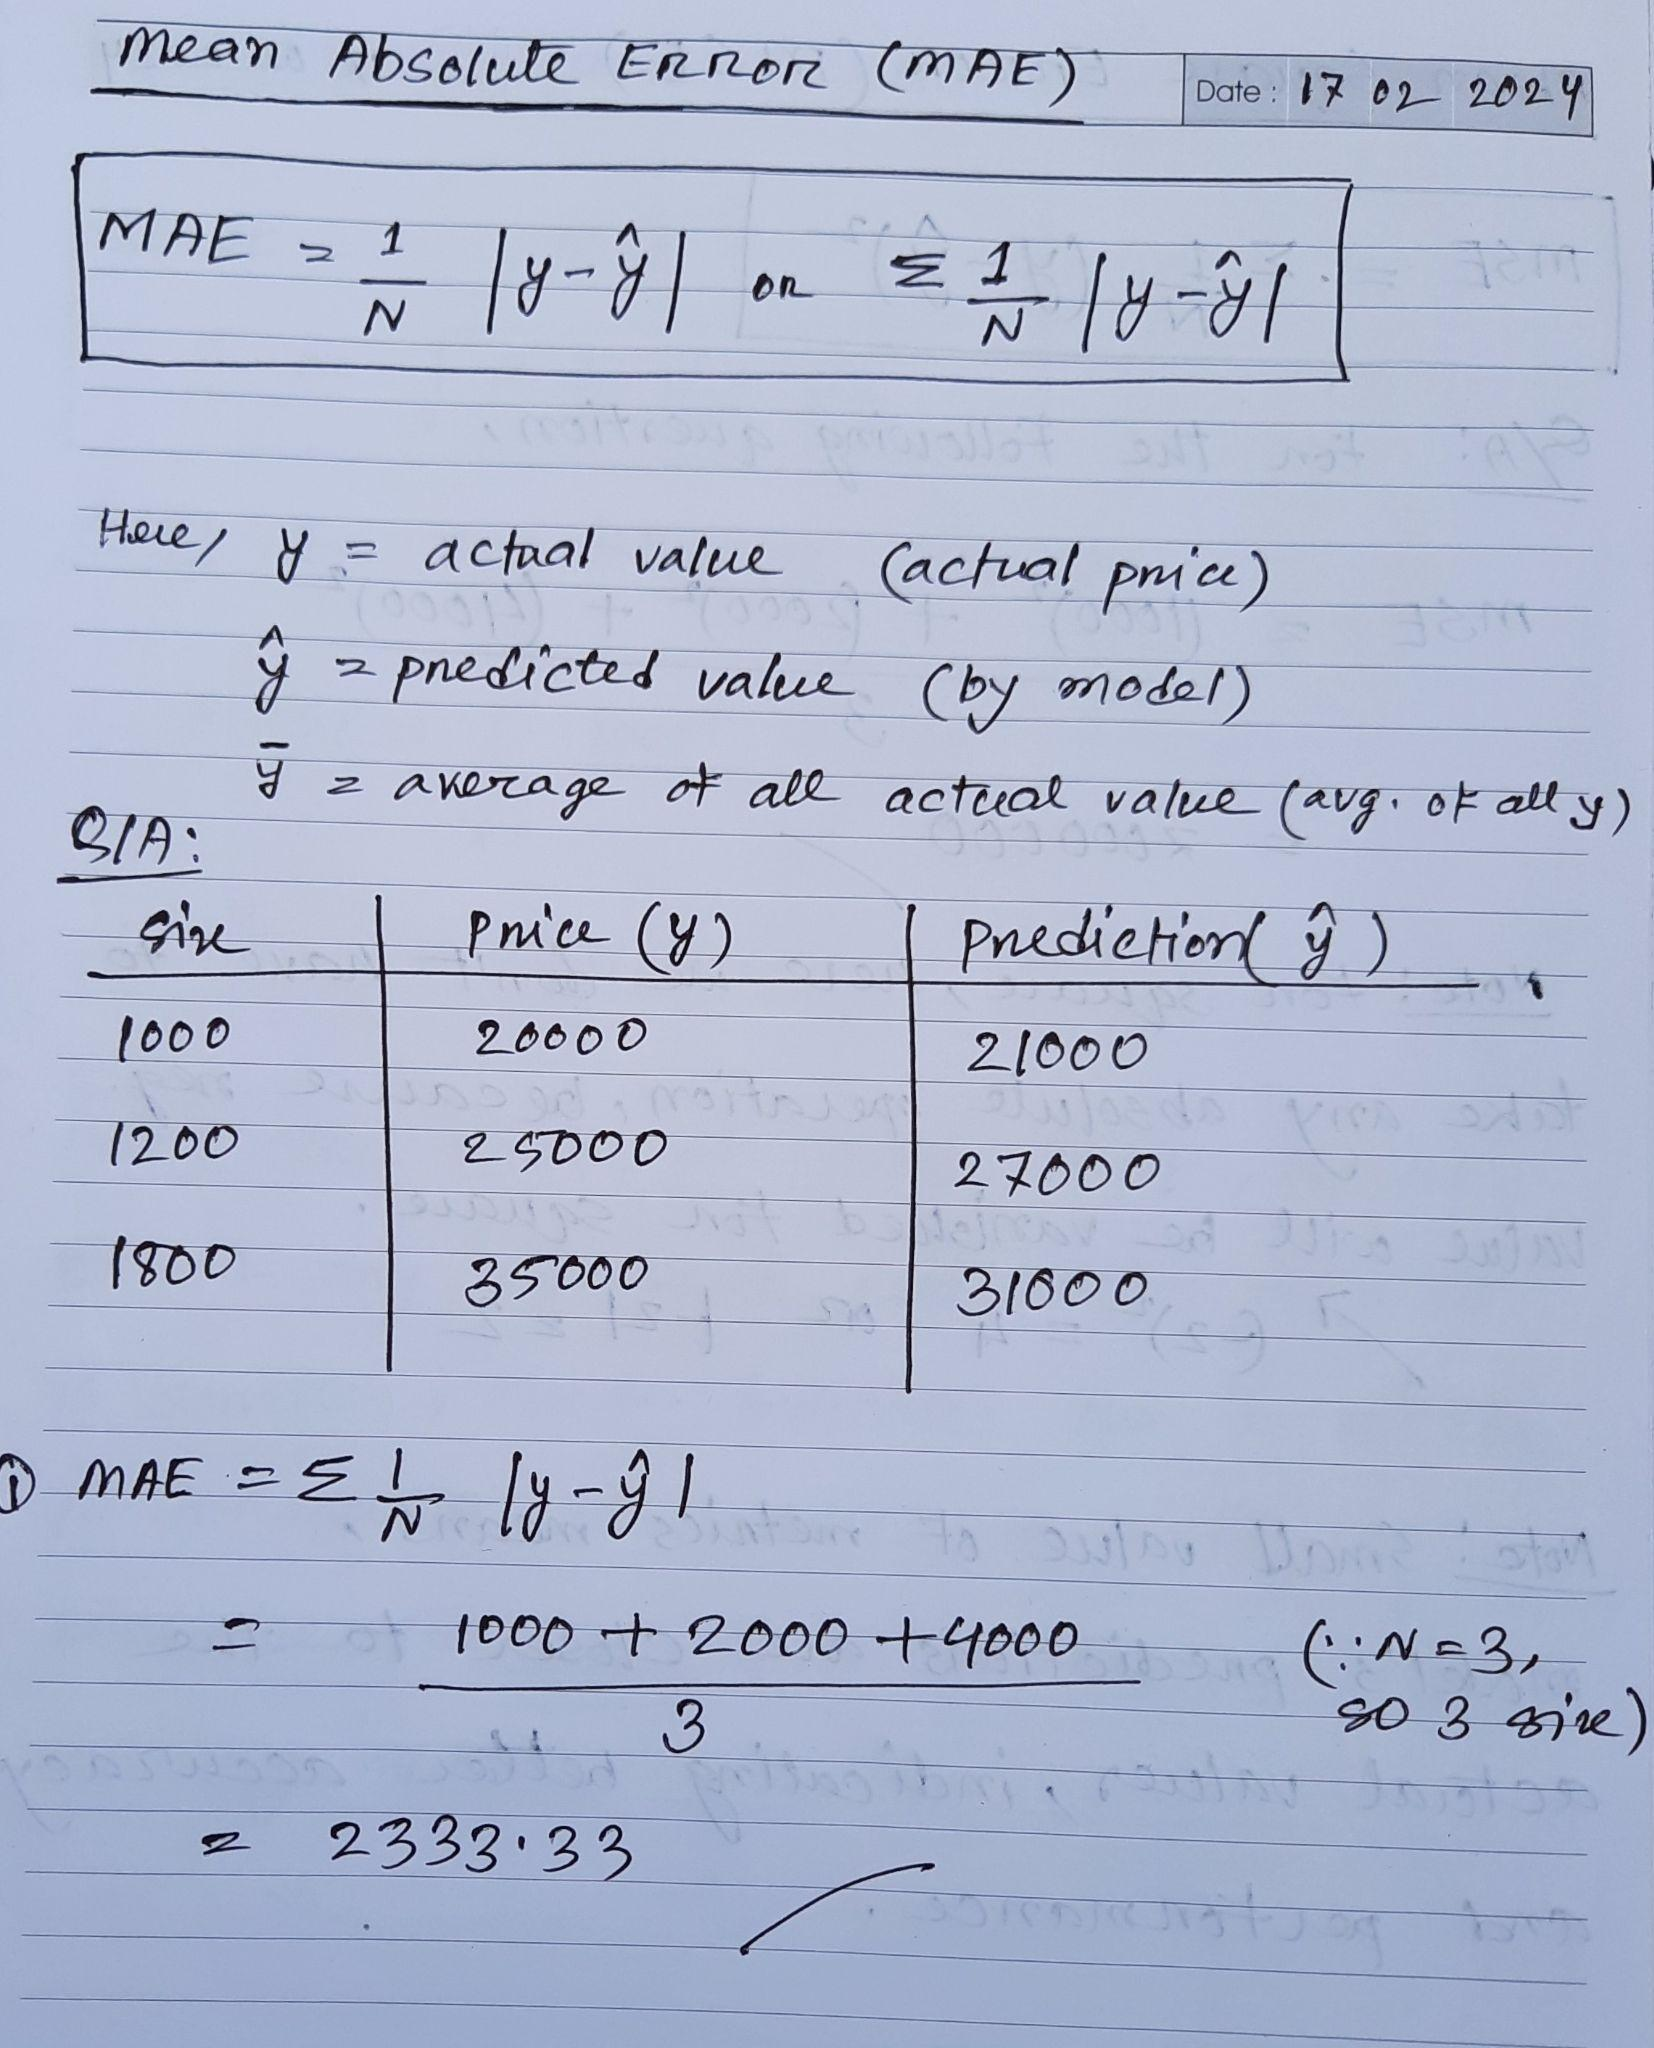 Mean Absolute Error (MAE)
Date: 17 02 2024
MAE = 1/N |y-ŷ| or Σ 1/N |y-ŷ|
Here, y = actual value (actual price)
ŷ = predicted value (by model)
ȳ = average of all actual value (avg. of all y)
Q/A:
size | price (y) | prediction(ŷ)
1000 | 20000 | 21000
1200 | 25000 | 27000
1800 | 35000 | 31000
① MAE = Σ 1/N |y-ŷ|
= 1000 + 2000 + 4000 / 3 (∵ N = 3,
so 3 size)
= 2333.33